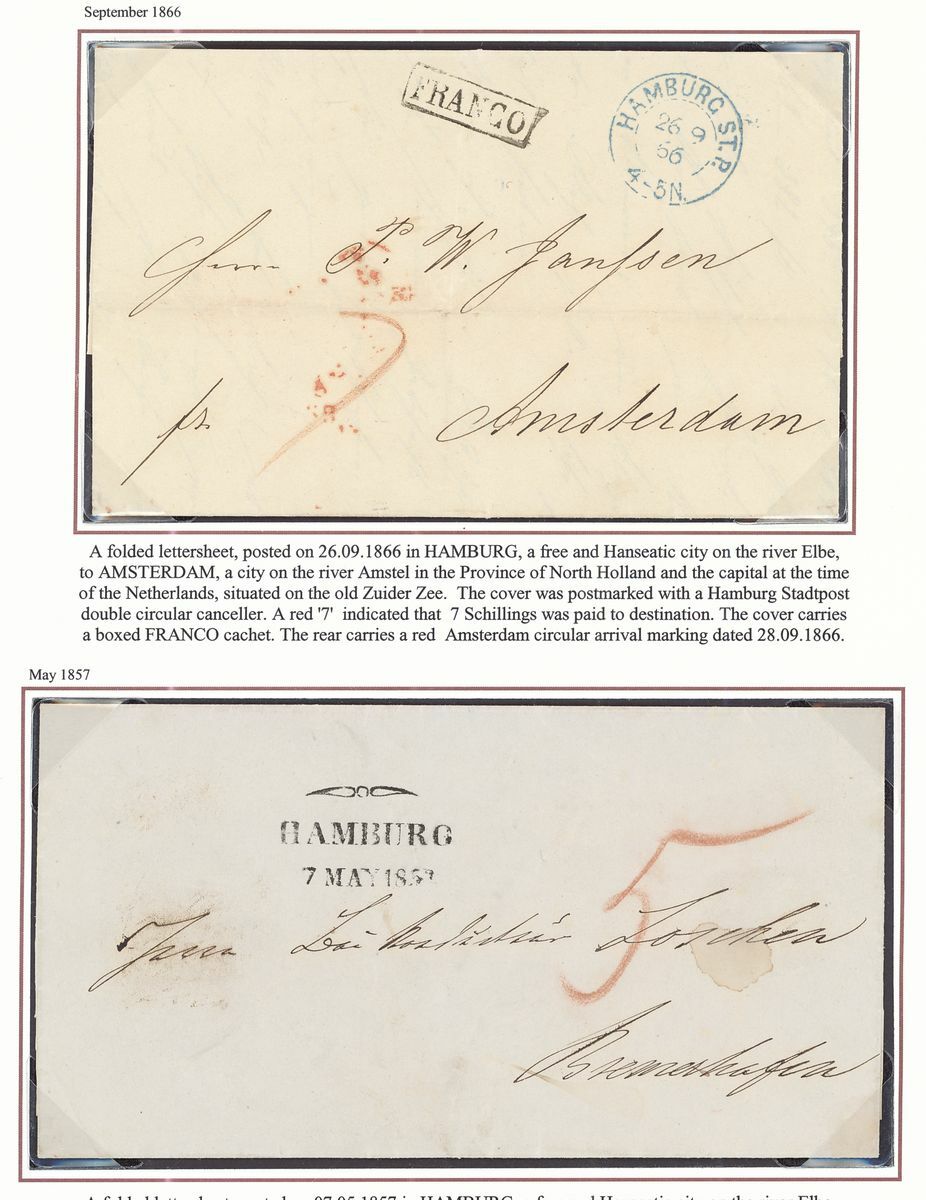 September 1866
FRANCO
HAMBURG ST.P.
26 9
66
4-5N.
Herrn P. W. Janssen
7
fr. Amsterdam
A folded lettersheet, posted on 26.09.1866 in HAMBURG, a free and Hanseatic city on the river Elbe,
to AMSTERDAM, a city on the river Amstel in the Province of North Holland and the capital at the time
of the Netherlands, situated on the old Zuider Zee. The cover was postmarked with a Hamburg Stadtpost
double circular canceller. A red '7' indicated that 7 Schillings was paid to destination. The cover carries
a boxed FRANCO cachet. The rear carries a red Amsterdam circular arrival marking dated 28.09.1866.
May 1857
HAMBURG
7 MAY 1857
5
Herrn Loschen
Bremerhafen
A folded lettersheet, posted on 07.05.1857 in HAMBURG, a free and Hanseatic city on the river Elbe,